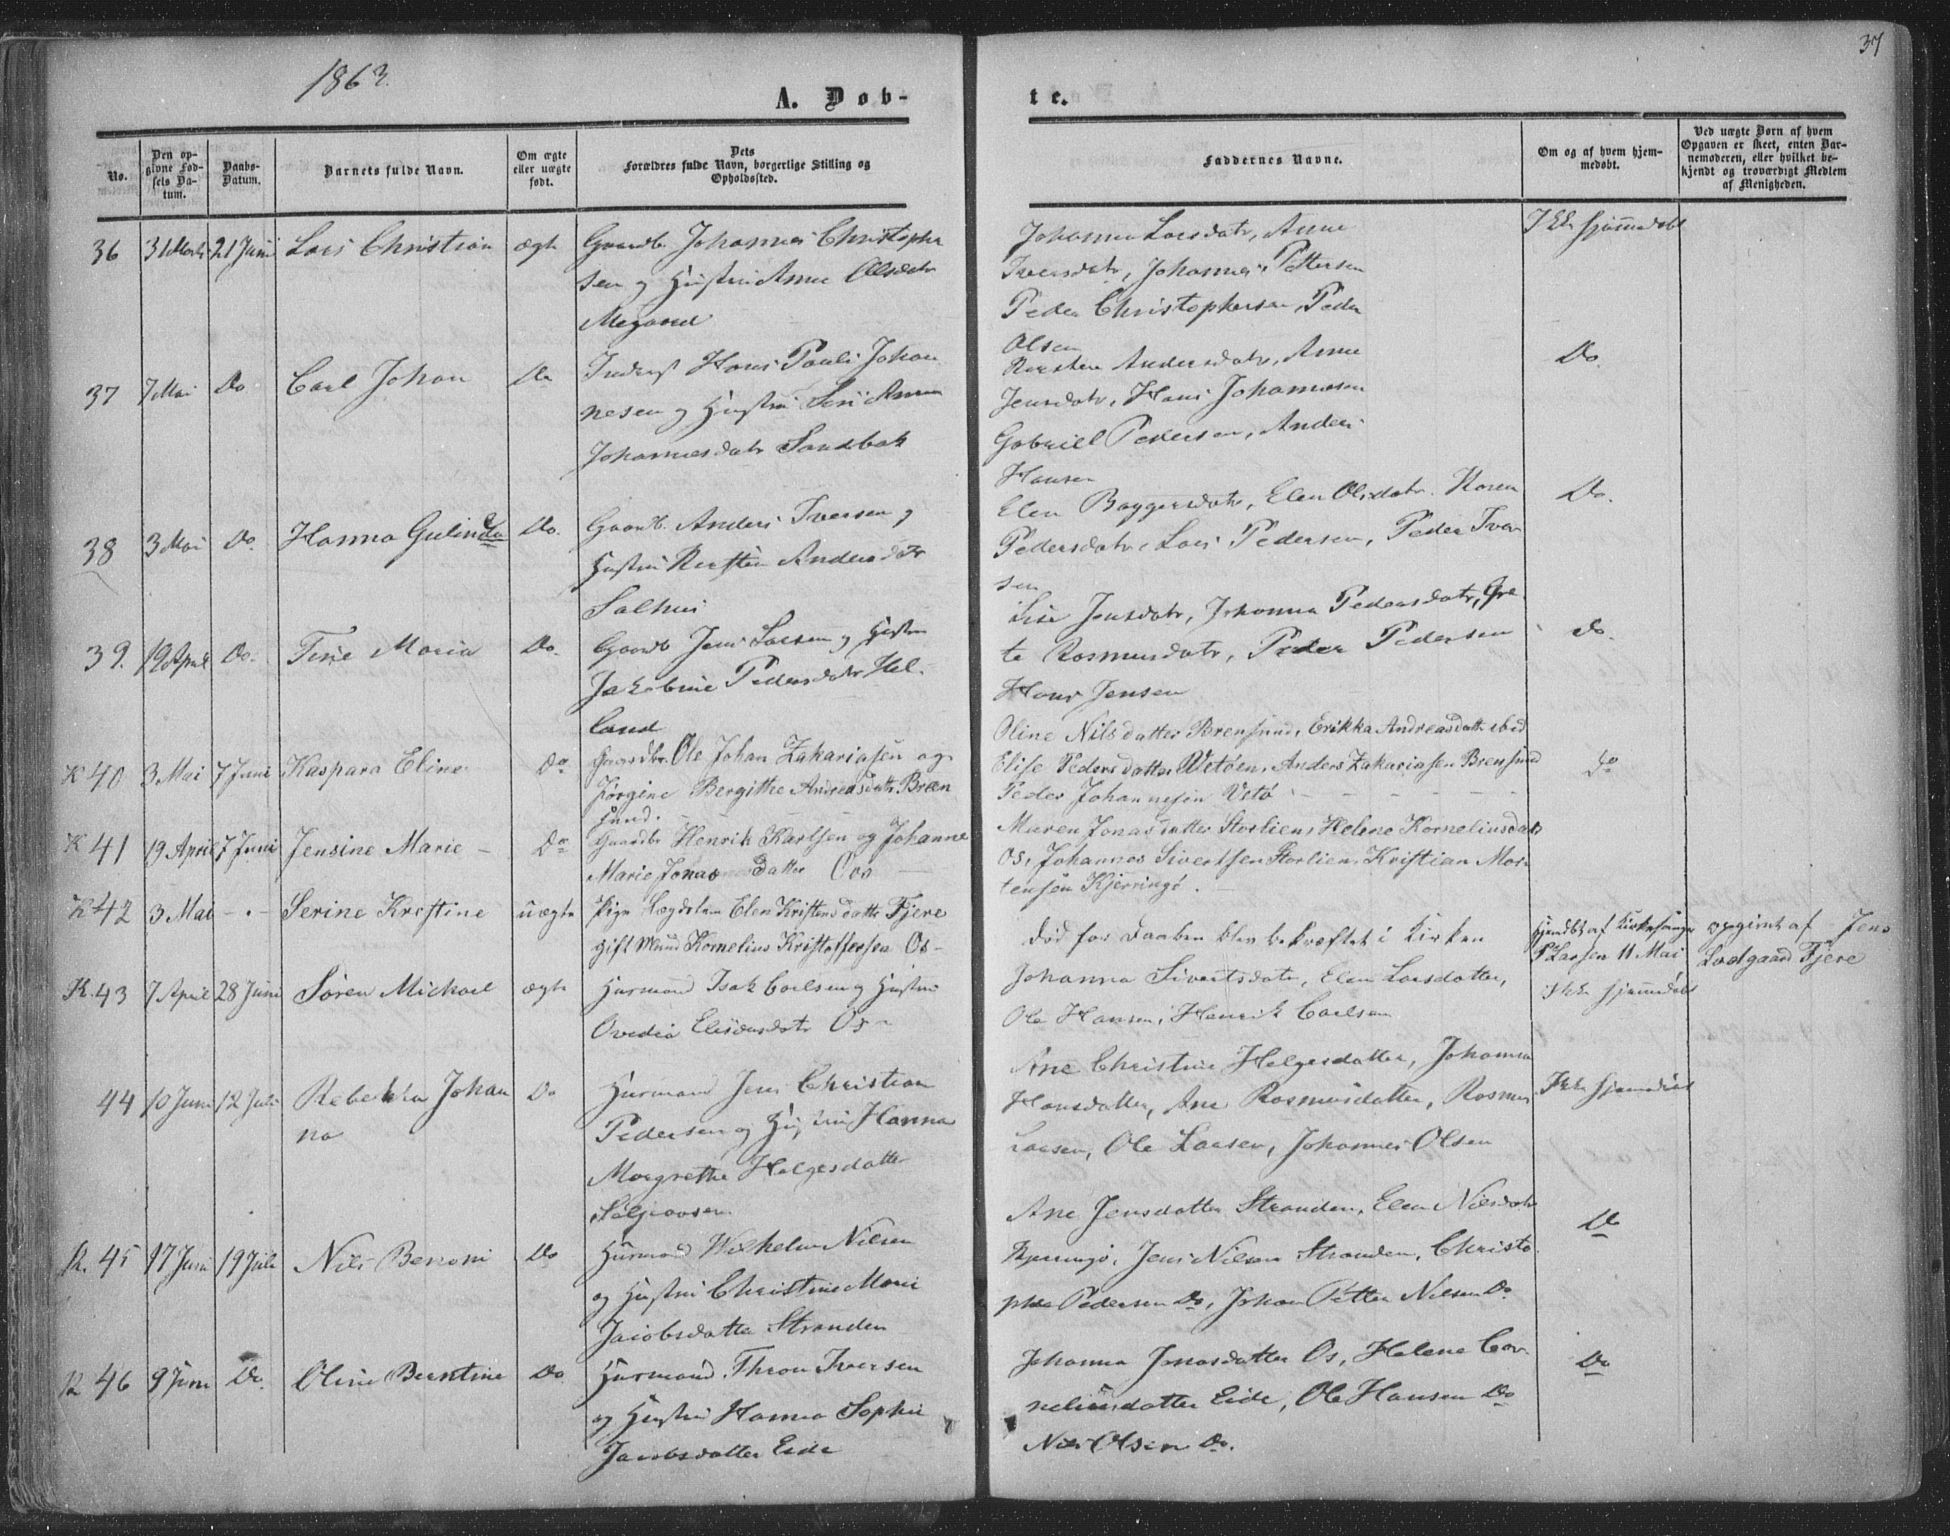 1863.
37
A. Døb-
te.
No.
Den op-
givne Fød-
sels Da-
tum.
Daabs-
Datum.
Barnets fulde Navn.
Om ægte
eller uægte
født.
Dets
Forældres fulde Navn, borgerlige Stilling og
Opholdssted.
Faddernes Navne.
Om og af hvem hjem-
medøbt.
Ved uægte Børn af hvem
Opgaven er skeet, enten Bar-
nemoderen, eller hvilket be-
kjendt og troværdigt Medlem
af Menigheden.
36 31 Marts 21 Juni Lars Christian ægte Gaardb. Johannes Christopher
sen og Hustru Anne Olsdatr
Megaard
Johanna Larsdatr, Anne
Iversdatr, Johannes Pettersen
Peder Christophersen, Peder
Olsen
Ikke hjemmedøbt
37 7 Mai Do Carl Johan Do Inderst Hans Pauli Johan
nesen og Hustru Seri Anna
Johannesdatr Sandbak
Kirsten Andersdatr, Anne
Jensdatr, Hans Johannesen
Gabriel Pedersen, Anders
Hansen
Do.
38 3 Mai Do. Hanna Gulinda Do. Gaardb. Anders Iversen og
Hustru Kirsten Andersdatr
Salhus
Elen Baggersdatr, Elen Olsdatr. Karen
Pedersdatr, Lars Pedersen, Peder Iver
sen
Do.
39. 19 April Do. Tine Maria Do. Gaardb Jens Larsen og Hustru
Jakobine Pedersdatr Hel.
land
Lise Jensdatr, Johanna Pedersdatr, Gre
te Rasmusdatr, Peder Pedersen
Hans Jensen
do.
K 40 3 Mai 7 Juni Kaspara Eline Do Gaardbr. Ole Johan Zakariasen og
Jørgine Bergithe Andreasdatr Bren
sund.
Oline Nilsdatter Brensund, Erikka Andreasdattr ibid
Elise Pedersdatter Vetøen, Anders Zakariasen Brensund
Peder Johannesen Vetø
do
K 41 19 April 7 Juni Jensine Marie Do Gaardbr Henrik Karlsen og Johanne
Marie Jonasdatter Oos
Maren Jonasdatter Storlien, Helene Korneliusdatr
Os, Johannes Sivertsen Storlien, Kristian Mor
tensen Kjerringø.
K 42 3 Mai Serine Krestine uægte Pige Lægdslem Elen Kristensdatter Fjere
gift Mand Kornelius Kristoffersen Os
Død før Daaben blev bekræftet i Kirken
hjemdøbt af Kirkesanger
P Larsen 11 Mai
opgivet af Jens
Ladgaard Fjere
K. 43 7 April 28 Juni Søren Michael ægte Husmand Isak Carlsen og Hustru
Ovedia Elisæusdatr Os
Johanna Sivertsdatr, Elen Larsdatter,
Ole Hansen, Henrik Carlsen
Ikke hjemmedøbt
44 10 Juni 12 Juli Rebekka Johan
na
Do Husmand Jens Christian
Pedersen og Hustru Hanna
Margrethe Helgesdatter
Seljeaasen
Ane Christine Helgesdatter, Johanna
Hansdatter, Ane Rasmusdatter, Rasmus
Larsen, Ole Larsen, Johannes Olsen
Ikke hjemmedøbt
K. 45 17 Juni 19 Juli Nils Benoni Do Husmand Wilhelm Nilsen
og Hustru Christine Marie
Jacobsdatter Stranden
Ane Jensdatter Stranden, Elen Nilsdatr
Kjerringø, Jens Nilsen Stranden, Christo
pher Pedersen Do, Johan Petter Nilsen Do
Do
K 46 9 Juni Do. Oline Berntine Do. Husmand Thron Iversen
og Hustru Hanna Sophie
Jacobsdatter Eide
Johanna Jonasdatter Os, Helene Cor
neliusdatter Eide, Ole Hansen Do
Nils Olsen Do.
Do